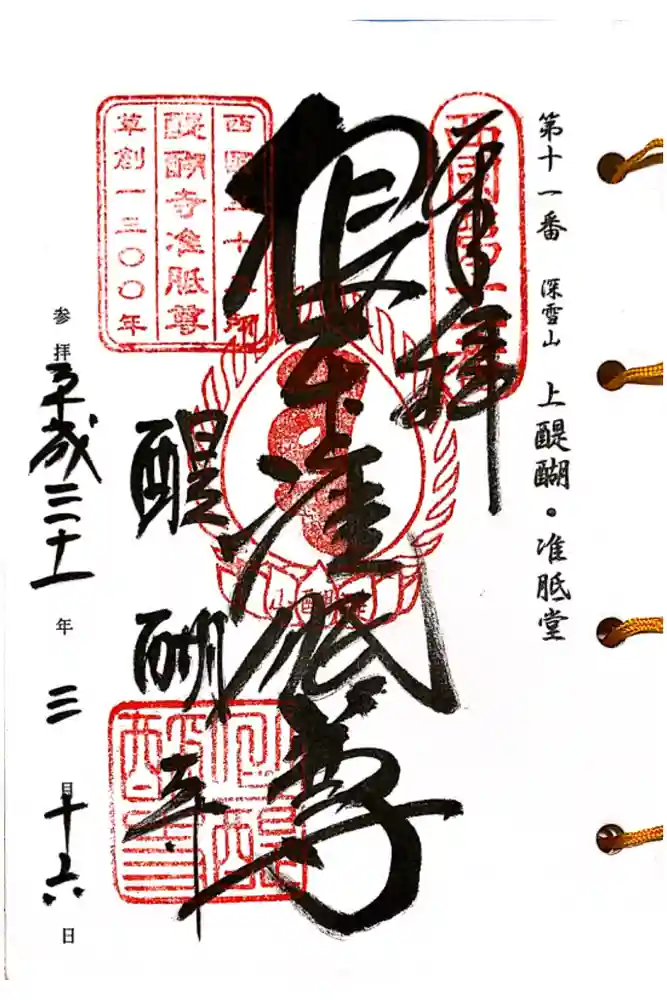 第十一番 深雪山 上醍醐・准胝堂
奉拝
西國第十一番
根本准胝尊
西國三十三所
醍醐寺准胝尊
草創一三〇〇年
醍醐寺
参拝 平成三十一年 三月十六日